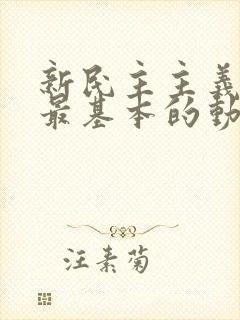 新民主主義
最基本的動
汪素菊